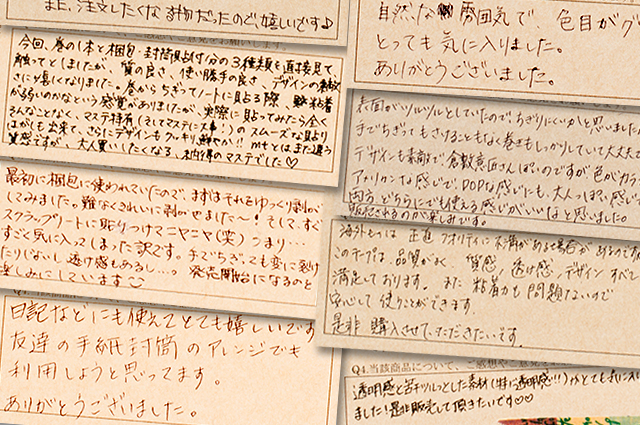 また、注文したくなる物だったので、嬉しいです♪
今回、巻の1本と梱包・封筒貼付分の3種類を直接見て、
触ってとしましたが、質の良さ、使い勝手の良さ、デザインの素敵
さに嬉しくなりました。巻からちぎってノートに貼る際、粘着
が弱いのかなという感覚がありましたが、実際に貼ってみたら全く
そんなことなく、マステ特有(そしてマステに大事!)のスムーズな貼り
はがしも出来て、さらにデザインもクッキリ、鮮やか!! mtとはまた違う
質感ですが、大人買いしたくなる、お値得のマステでした♡
最初に梱包に使われていたので、まずはそれをゆっくり剥が
してみました。難なくきれいに剥がせました〜!そして、すぐ
スクラップノートに貼りつけマニヤニヤ(笑) つまり…
すごく気に入ってしまった訳です。手でちぎっても変に裂け
たりしないし透け感もあるし…。発売開始になるのと
楽しみにしています
日記などにも使えてとても嬉しいです
友達の手紙封筒のアレンジでも
利用しようと思ってます。
ありがとうございました。
自然な 雰囲気で 色目がグ
とっても気に入りました。
ありがとうございました。
表面がツルツルとしていたので、ちぎりにくいかと思いました
手でちぎってもさけることもなく巻きもしっかりしていて大丈夫で
デザインも素敵で倉敷意匠さんぽいのですが色がカラ
アメリカンな感じで、POPな感じにも、大人っぽい感じ
両方、どちらにでも使える感じがいいなと思いました。
販売されるのが楽しみです。
海外ものは正直クオリティに不満がある場合があるのですが
このテープは、品質が良く 質感 透け感、デザインすべて
満足しております。また 粘着力も問題ないので
安心して使うことができます。
是非 購入させていただきたいです。
Q4.当該商品について、ご感想やご意見を
透明感と苦ツルっとした素材(特に透明感!!)がとても気に入
ました!是非販売して頂きたいです♡♡